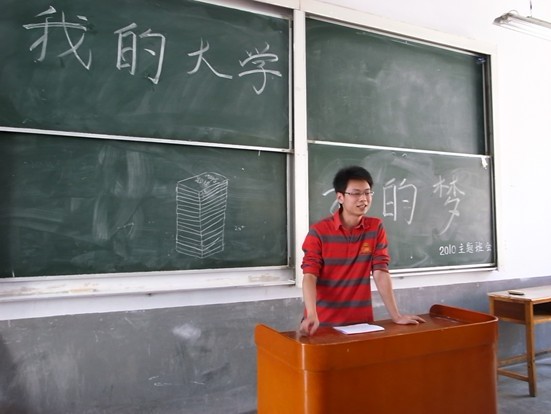 我的大学
的梦
2010主题班会